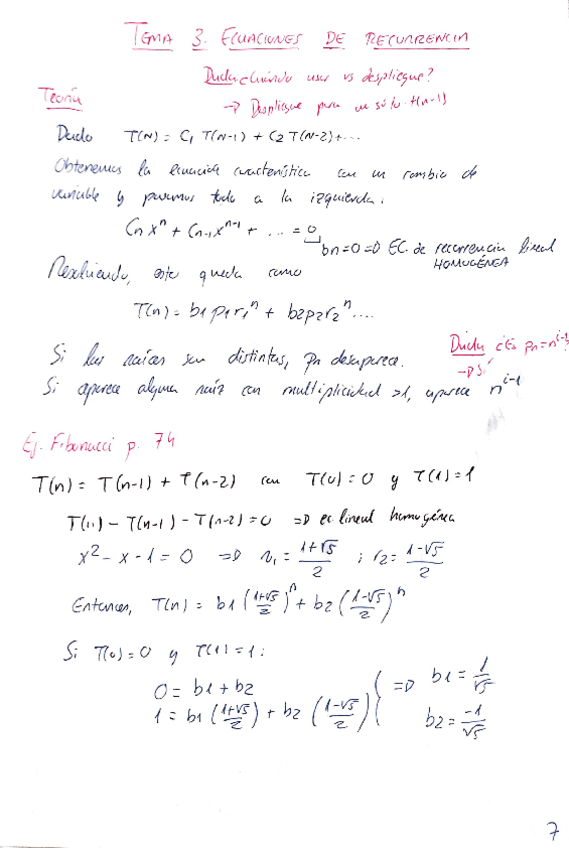 TEMA 3. ECUACIONES DE RECURRENCIA
Duda cuándo usar vs despliegue?
→ Despliegue para un sólo t(n-1)
Teoría
Dado T(N) = C₁ T(N-1) + C₂ T(N-2) + ...
Obtenemos la ecuación característica con un cambio de
variable y pasamos todo a la izquierda.
Cn xⁿ + Cn-1 xⁿ⁻¹ + ... = 0
bn = 0 => EC. de recurrencia lineal
HOMOGÉNEA
Resolviendo, esto queda como
T(n) = b1p1r1ⁿ + b2p2r2ⁿ ....
Si las raíces son distintas, pn desaparece.
Duda ¿Es pn = nⁱ⁻¹?
→ Sí
Si aparece alguna raíz con multiplicidad >1, aparece nⁱ⁻¹
Ej. Fibonacci p. 74
T(n) = T(n-1) + T(n-2) con T(0) = 0 y T(1) = 1
T(n) - T(n-1) - T(n-2) = 0 => ec. lineal homogénea
x² - x - 1 = 0 => r₁ = (1+√5)/2 ; r₂ = (1-√5)/2
Entonces, T(n) = b1 ((1+√5)/2)ⁿ + b2 ((1-√5)/2)ⁿ
Si T(0) = 0 y T(1) = 1:
0 = b1 + b2
1 = b1 ((1+√5)/2) + b2 ((1-√5)/2) } => b1 = 1/√5
b2 = -1/√5
7